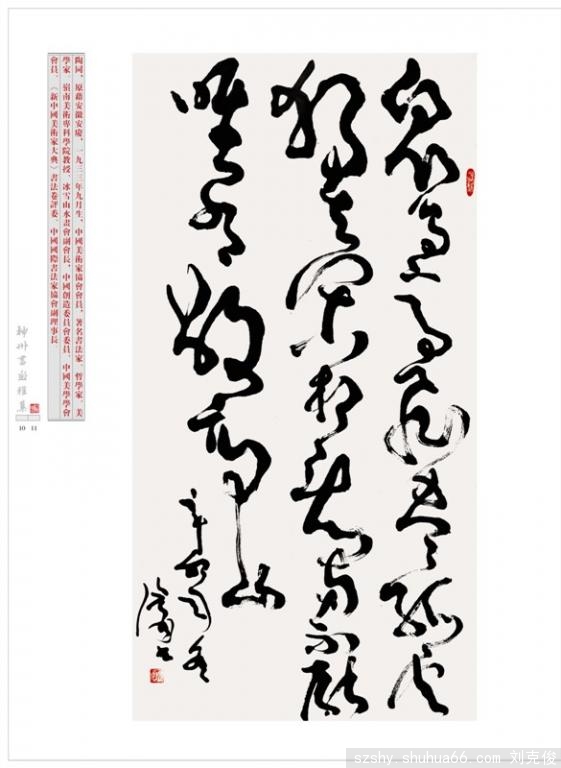 眾鳥高飛盡孤雲
獨去閑相看兩不厭
唯有敬亭山
陶同，原籍安徽安慶，一九三三年九月生，中國美術家協會會員，著名書法家、哲學家、美
學家，嶺南美術專科學院教授、冰雪山水畫會副會長、中國創造委員會委員、中國美學學會
會員、《新中國美術家大典》書法卷評委、中國國際書法家協會副理事長
神州書雅集
10 11
szshy shuhua66 com 刘克俊